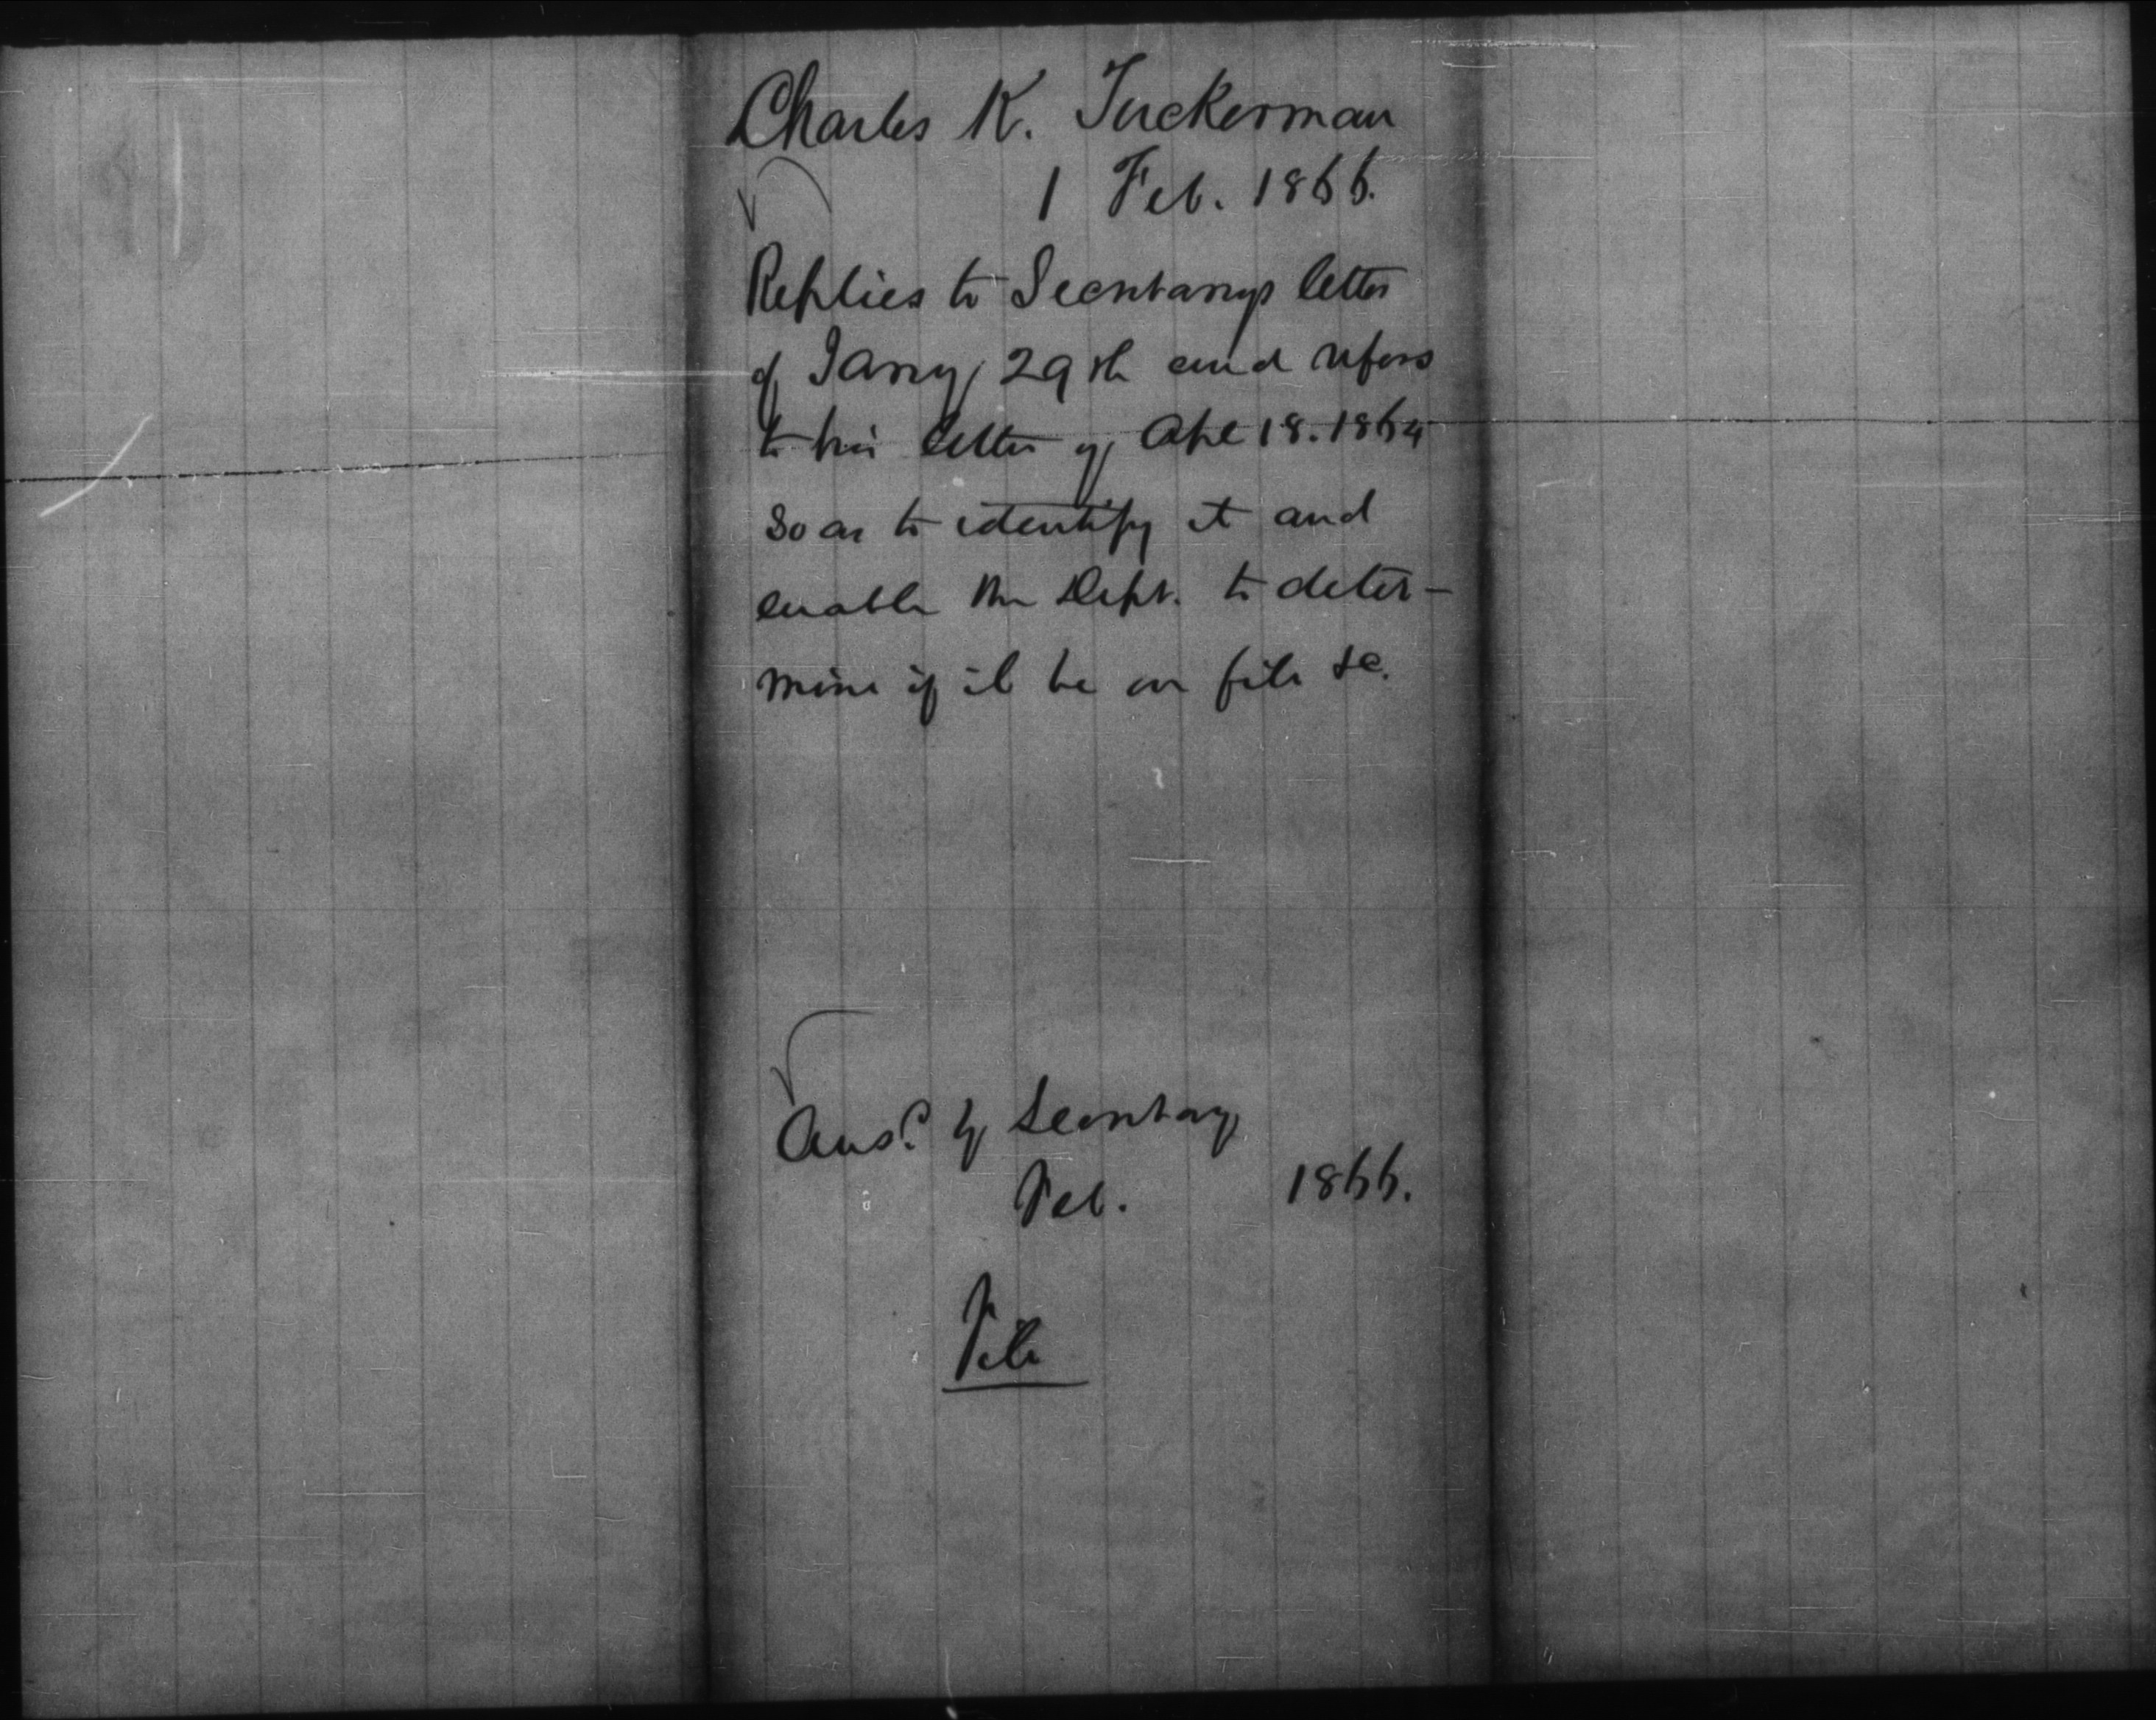 Charles K. Tuckerman
1 Feb. 1866.
Replies to Secretarys letter
of Jany 29th and refers
to his letter of Apl 18. 1864
so as to identify it and
enable the Dept. to deter-
mine if it be on file &c.
Ansd. by Secretary
Feb. 1866.
File